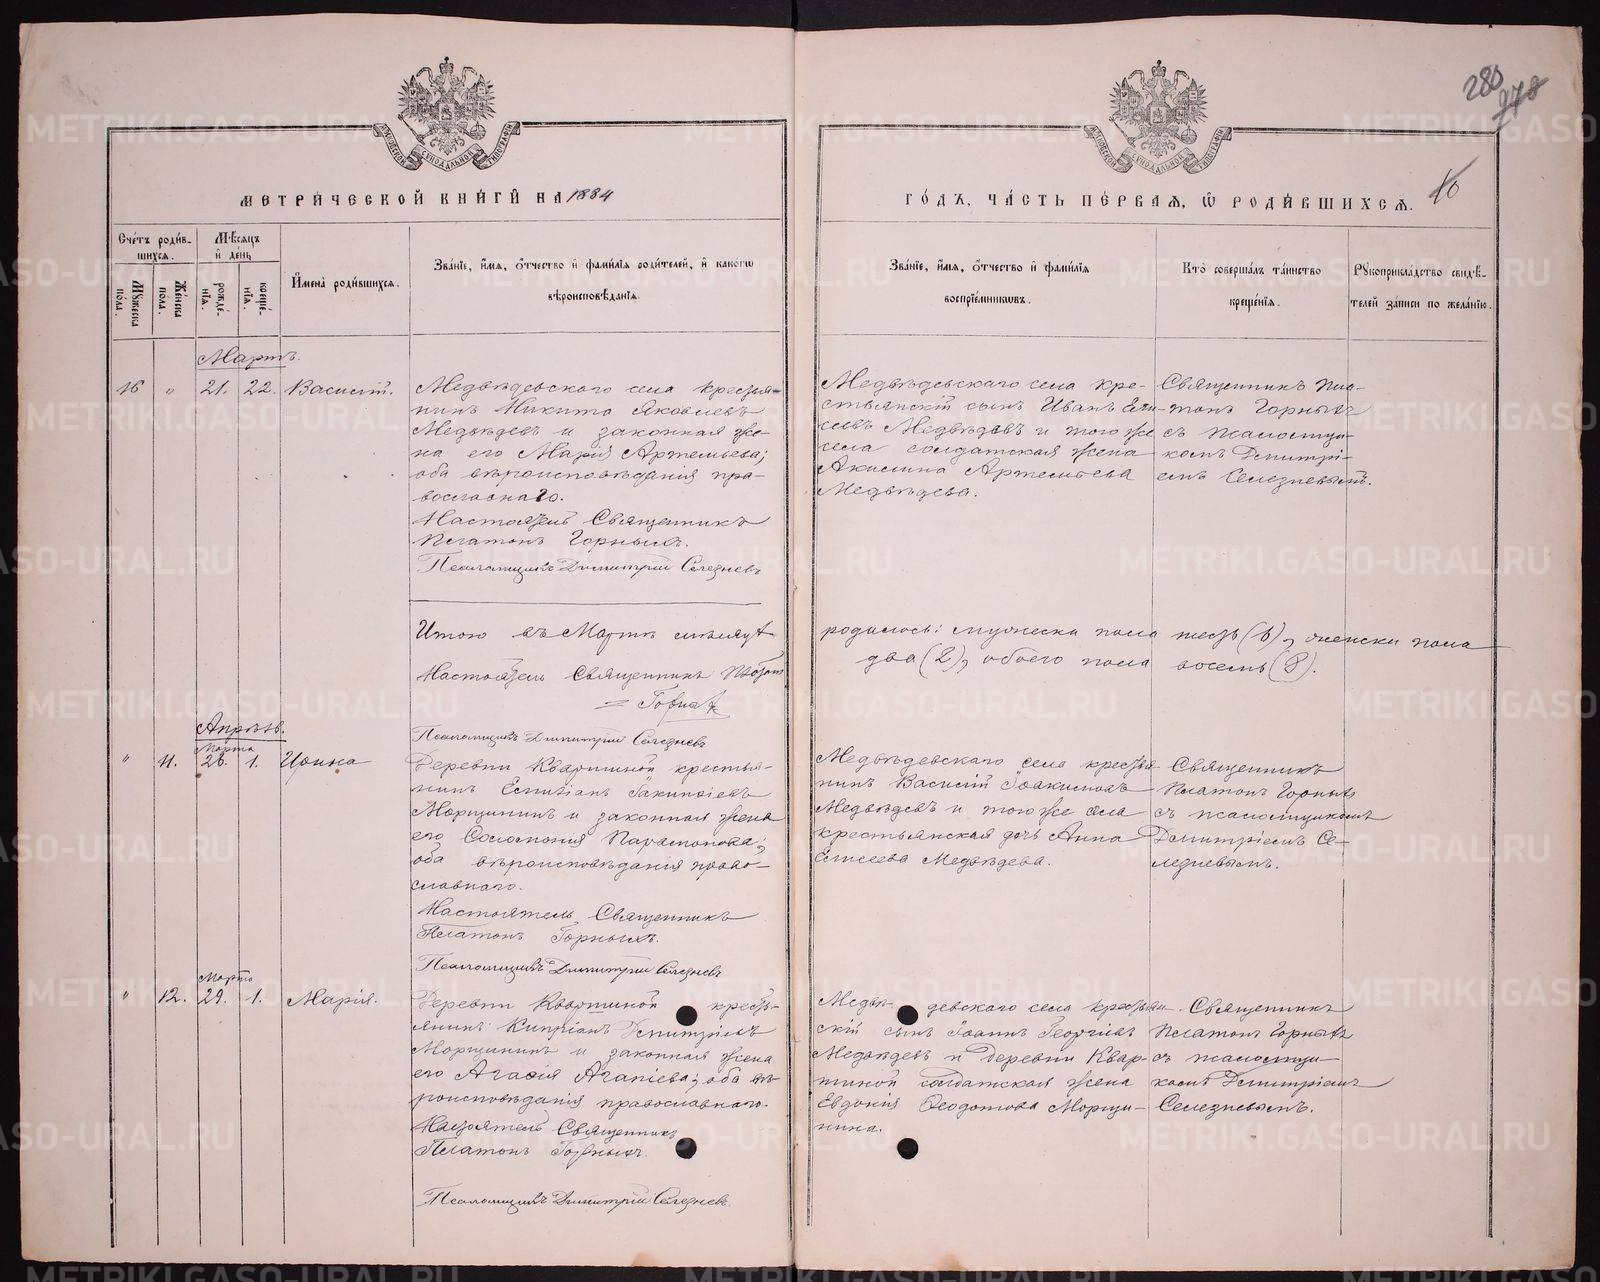 280
278
МОСКОВСКОЙ СѴНОДАЛЬНОЙ ТИПОГРАФІИ
МЕТРИ́ЧЕСКОЙ КНИ́ГИ НА 1884
ГО́ДЪ, ЧА́СТЬ ПЕ́РВАЯ, Ѡ РОДИ́ВШИХСЯ.
10
Сче́тъ роди́в-
шихся.
Му́жеска по́ла.
Же́нска по́ла.
Мѣ́сяцъ
и҆ де́нь
рожде́-
нїя.
креще́-
нїя.
И҆мена̀ роди́вшихся.
Зва́нїе, и҆́мя, ѻ҆́тчество и҆ фами́лїя роди́телей, и҆ како́гѡ
вѣроисповѣ́данїя.
Зва́нїе, и҆́мя, ѻ҆́тчество и҆ фами́лїя
воспрїе́мникѡвъ.
Кто̀ соверша́лъ та́инство
креще́нїя.
Рꙋкоприкла́дство свидѣ́-
телей за́писи по жела́нїю.
Мартъ.
16 " 21. 22. Василій.
Медвѣдевскаго села крестья-
нинъ Никита Яковлевъ
Медвѣдевъ и законная же-
на его Марія Артемьева;
оба вѣроисповѣданія пра-
вославнаго.
Настоятель Священникъ
Платонъ Горныхъ.
Псаломщикъ Димитрій Селезневъ
Медвѣдевскаго села кре-
стьянскій сынъ Иванъ Ели-
сѣевъ Медвѣдевъ и того же
села солдатская жена
Акилина Артемьева
Медвѣдева.
Священникъ Пла-
тонъ Горныхъ
съ псаломщи-
комъ Димитрі-
емъ Селезневымъ.
Итого въ Мартѣ мѣсяцѣ
родилось: мужеска пола шесть (6), женска пола
два (2), обоего пола восемь (8).
Настоятель Священникъ Платонъ
Горныхъ
Псаломщикъ Димитрій Селезневъ
Апрѣль.
Марта
" 11. 26. 1. Ирина
Деревни Квартиной крестья-
нинъ Іакинѳіевъ
Морщининъ и законная жена
его Соломонія Парамонова;
оба вѣроисповѣданія право-
славнаго.
Настоятель Священникъ
Платонъ Горныхъ.
Псаломщикъ Димитрій Селезневъ
Медвѣдевскаго села крестья-
нинъ Василій Іоакимовъ
Медвѣдевъ и того же села
крестьянская дочь Анна
Елисеева Медвѣдева.
Священникъ
Платонъ Горныхъ
съ псаломщикомъ
Димитріемъ Се-
лезневымъ.
Марта
" 12. 29. 1. Марія.
Деревни Квартиной кресть-
янинъ Кипріанъ Димитріевъ
Морщининъ и законная жена
его Агафія Агапіева; оба вѣ-
роисповѣданія православнаго.
Настоятель Священникъ
Платонъ Горныхъ.
Псаломщикъ Димитрій Селезневъ.
Медвѣ-девскаго села крестьян-
скій сынъ Іоаннъ Георгіевъ
Медвѣдевъ и деревниКвар-
тиной солдатская жена
Евдокія Ѳеодотова Морщи-
нина.
Священникъ
Платонъ Горныхъ
съ псаломщи-
комъ Димитріемъ
Селезневымъ.
METRIKI.GASO-URAL.RU